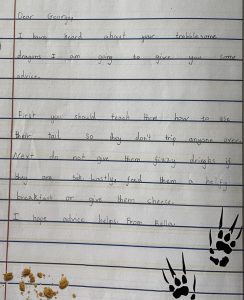 Dear Georgey
I have heard about your troblesome
dragons I am going to give you some
advice.
First you should teach them how to use
their tail so they don't trip anyone over.
Next do not give them fizzy drinks if
they are Lastly feed them a
breakfast or give them cheese.
I hope advice helps. From